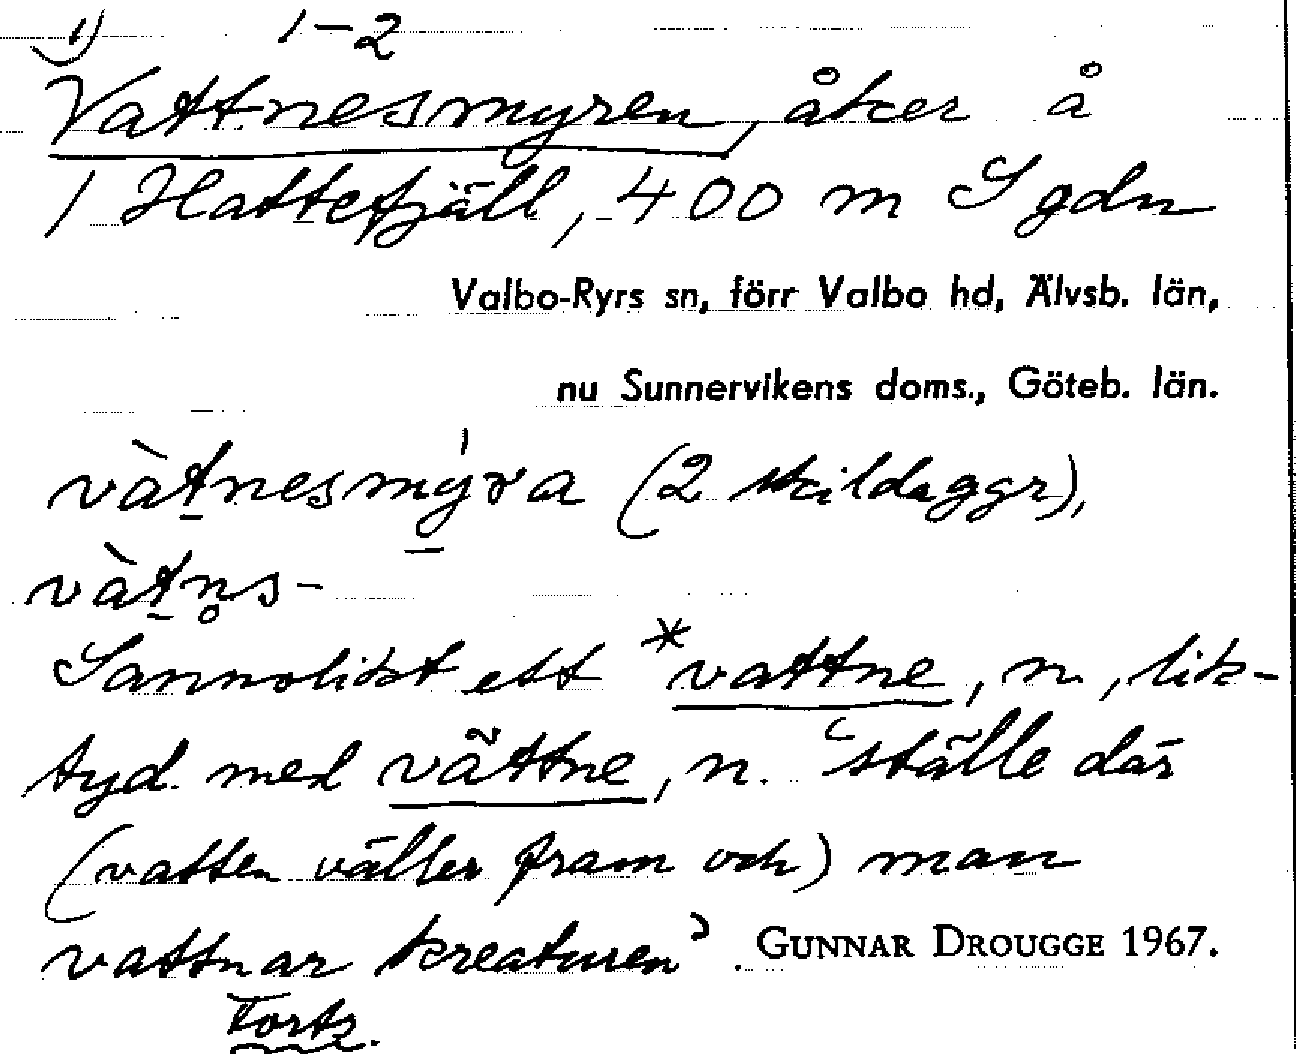 1) 1-2
Vattnesmyren, åker å
1 Hattefjäll, 400 m S gdn
Valbo-Ryrs sn, förr Valbo hd, Älvsb. län,
nu Sunnervikens doms., Göteb. län.
vàt̠nesmý̠ra (2 skilda ggr),
vàt̠n̥s-
Sannolikt ett *vattne, n., lik-
tyd. med vättne, n. ‘ställe där
(vatten väller fram och) man
vattnar kreaturen’ GUNNAR DROUGGE 1967.
Forts.